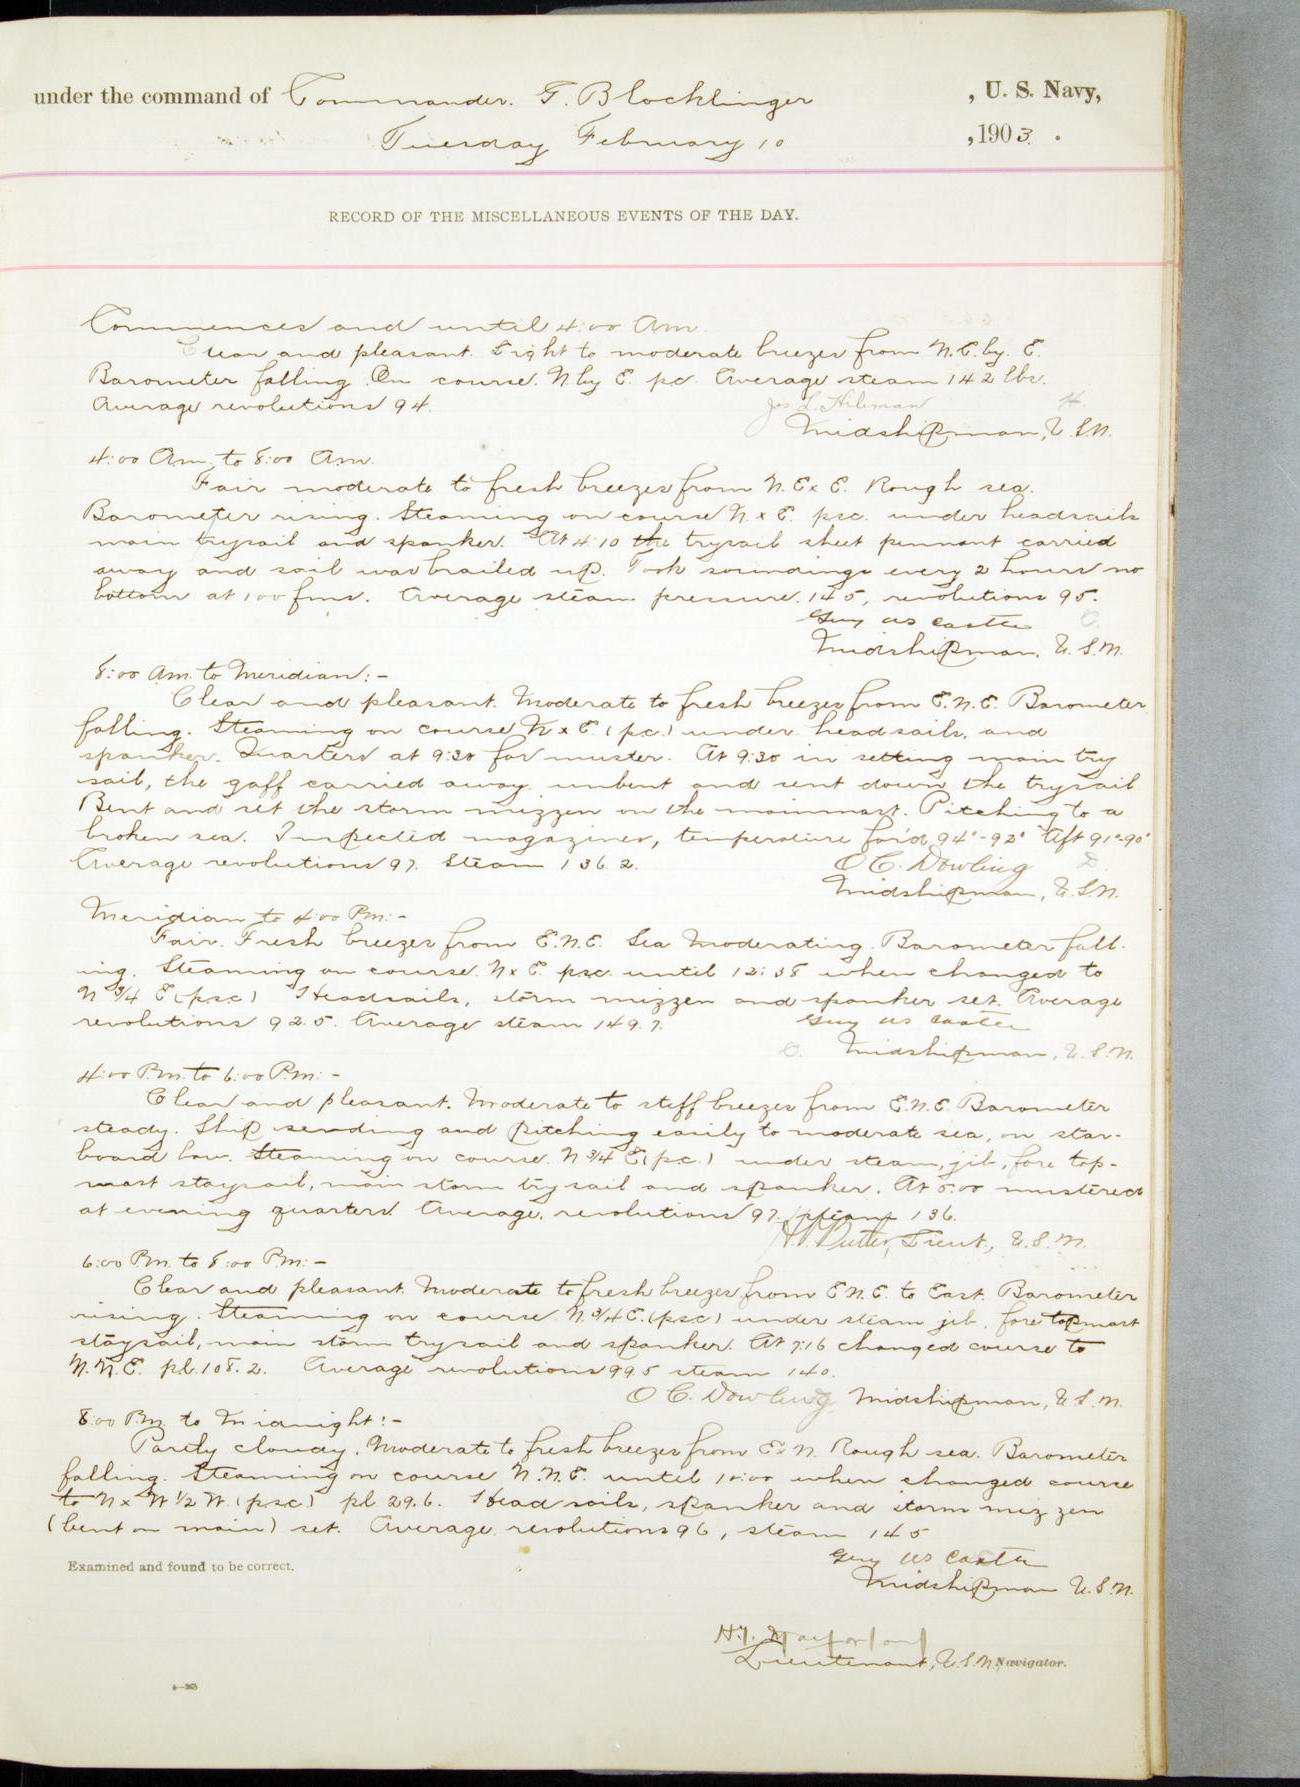 under the command of Commander. G. Blocklinger , U. S. Navy,
Tuesday February 10 , 1903.
RECORD OF THE MISCELLANEOUS EVENTS OF THE DAY.
Commences and until 4:00 Am.
Clear and pleasant. Light to moderate breezes from N.E. by. E.
Barometer falling. On course. N by E. pc. Average steam 142 lbs.
Average revolutions 94.
Jos L. Hileman H.
Midshipman, U.S.N.
4:00 Am. to 8:00 Am.
Fair moderate to fresh breezes from N.E x E. Rough sea.
Barometer rising. Steaming on course N. x E. psc. under headsails
main trysail and spanker. At 4:10 the trysail sheet pennant carried
away and sail was brailed up. Took soundings every 2 hours no
bottom at 100 fms. Average steam pressure. 145, revolutions 95.
Guy W S Castle C.
Midshipman. U.S.N.
8:00 Am. to Meridian:-
Clear and pleasant. Moderate to fresh breezes from E.N.E. Barometer
falling. Steaming on course N x E (pc.) under headsails, and
spanker. Quarters at 9:30 for muster. At 9:30 in setting main try
sail, the gaff carried away. unbent and sent down the trysail
Bent and set the storm mizzen on the mainmast. Pitching to a
broken sea. Inspected magazines, temperature for'd 94°-92° Aft 91°-90°
Average revolutions 97. Steam 136.2.
O C. Dowling D.
Midshipman, U.S.N.
Meridian to 4:00 Pm:-
Fair. Fresh breezes from E.N.E. Sea Moderating. Barometer fall-
ing. Steaming on course. N x E. psc. until 12:38 when changed to
N 3/4 E (psc) Headsails, storm mizzen and spanker set. Average
revolutions 92.5. Average steam 149.7.
Guy W S Castle
C. Midshipman, U.S.N.
4:00 P.m. to 6:00 P.m:-
Clear and pleasant. Moderate to stiff breezes from E.N.E. Barometer
steady. Ship sending and pitching easily to moderate sea, on star-
board bow. Steaming on course. N 3/4 E (p.c.) under steam, jib, fore top-
mast staysail, main storm trysail and spanker. At 5:00 mustered
at evening quarters Average. revolutions 97. steam 136.
Lieut., U.S.N.
6:00 Pm. to 8:00 P.m:-
Clear and pleasant. Moderate to fresh breezes from E.N.E. to East. Barometer
rising. Steaming on course N. 3/4 E. (psc) under steam jib, fore topmast
staysail, main storm trysail and spanker. At 7:16 changed course to
N.N.E. pl. 108.2. Average revolutions 99.5 steam 140.
O C. Dowling Midshipman, U.S.N.
8:00 P.m. to Midnight:-
Partly cloudy. Moderate to fresh breezes from E x N. Rough sea. Barometer
falling. Steaming on course N.N.E. until 10:00 when changed course
to N x W 1/2 W. (psc) pl 29.6. Head sails, spanker and storm mizzen
(bent on main) set. Average revolutions 96, steam 145
Guy W S Castle
Midshipman U.S.N.
Examined and found to be correct.
Lieutenant, U.S.N., Navigator.